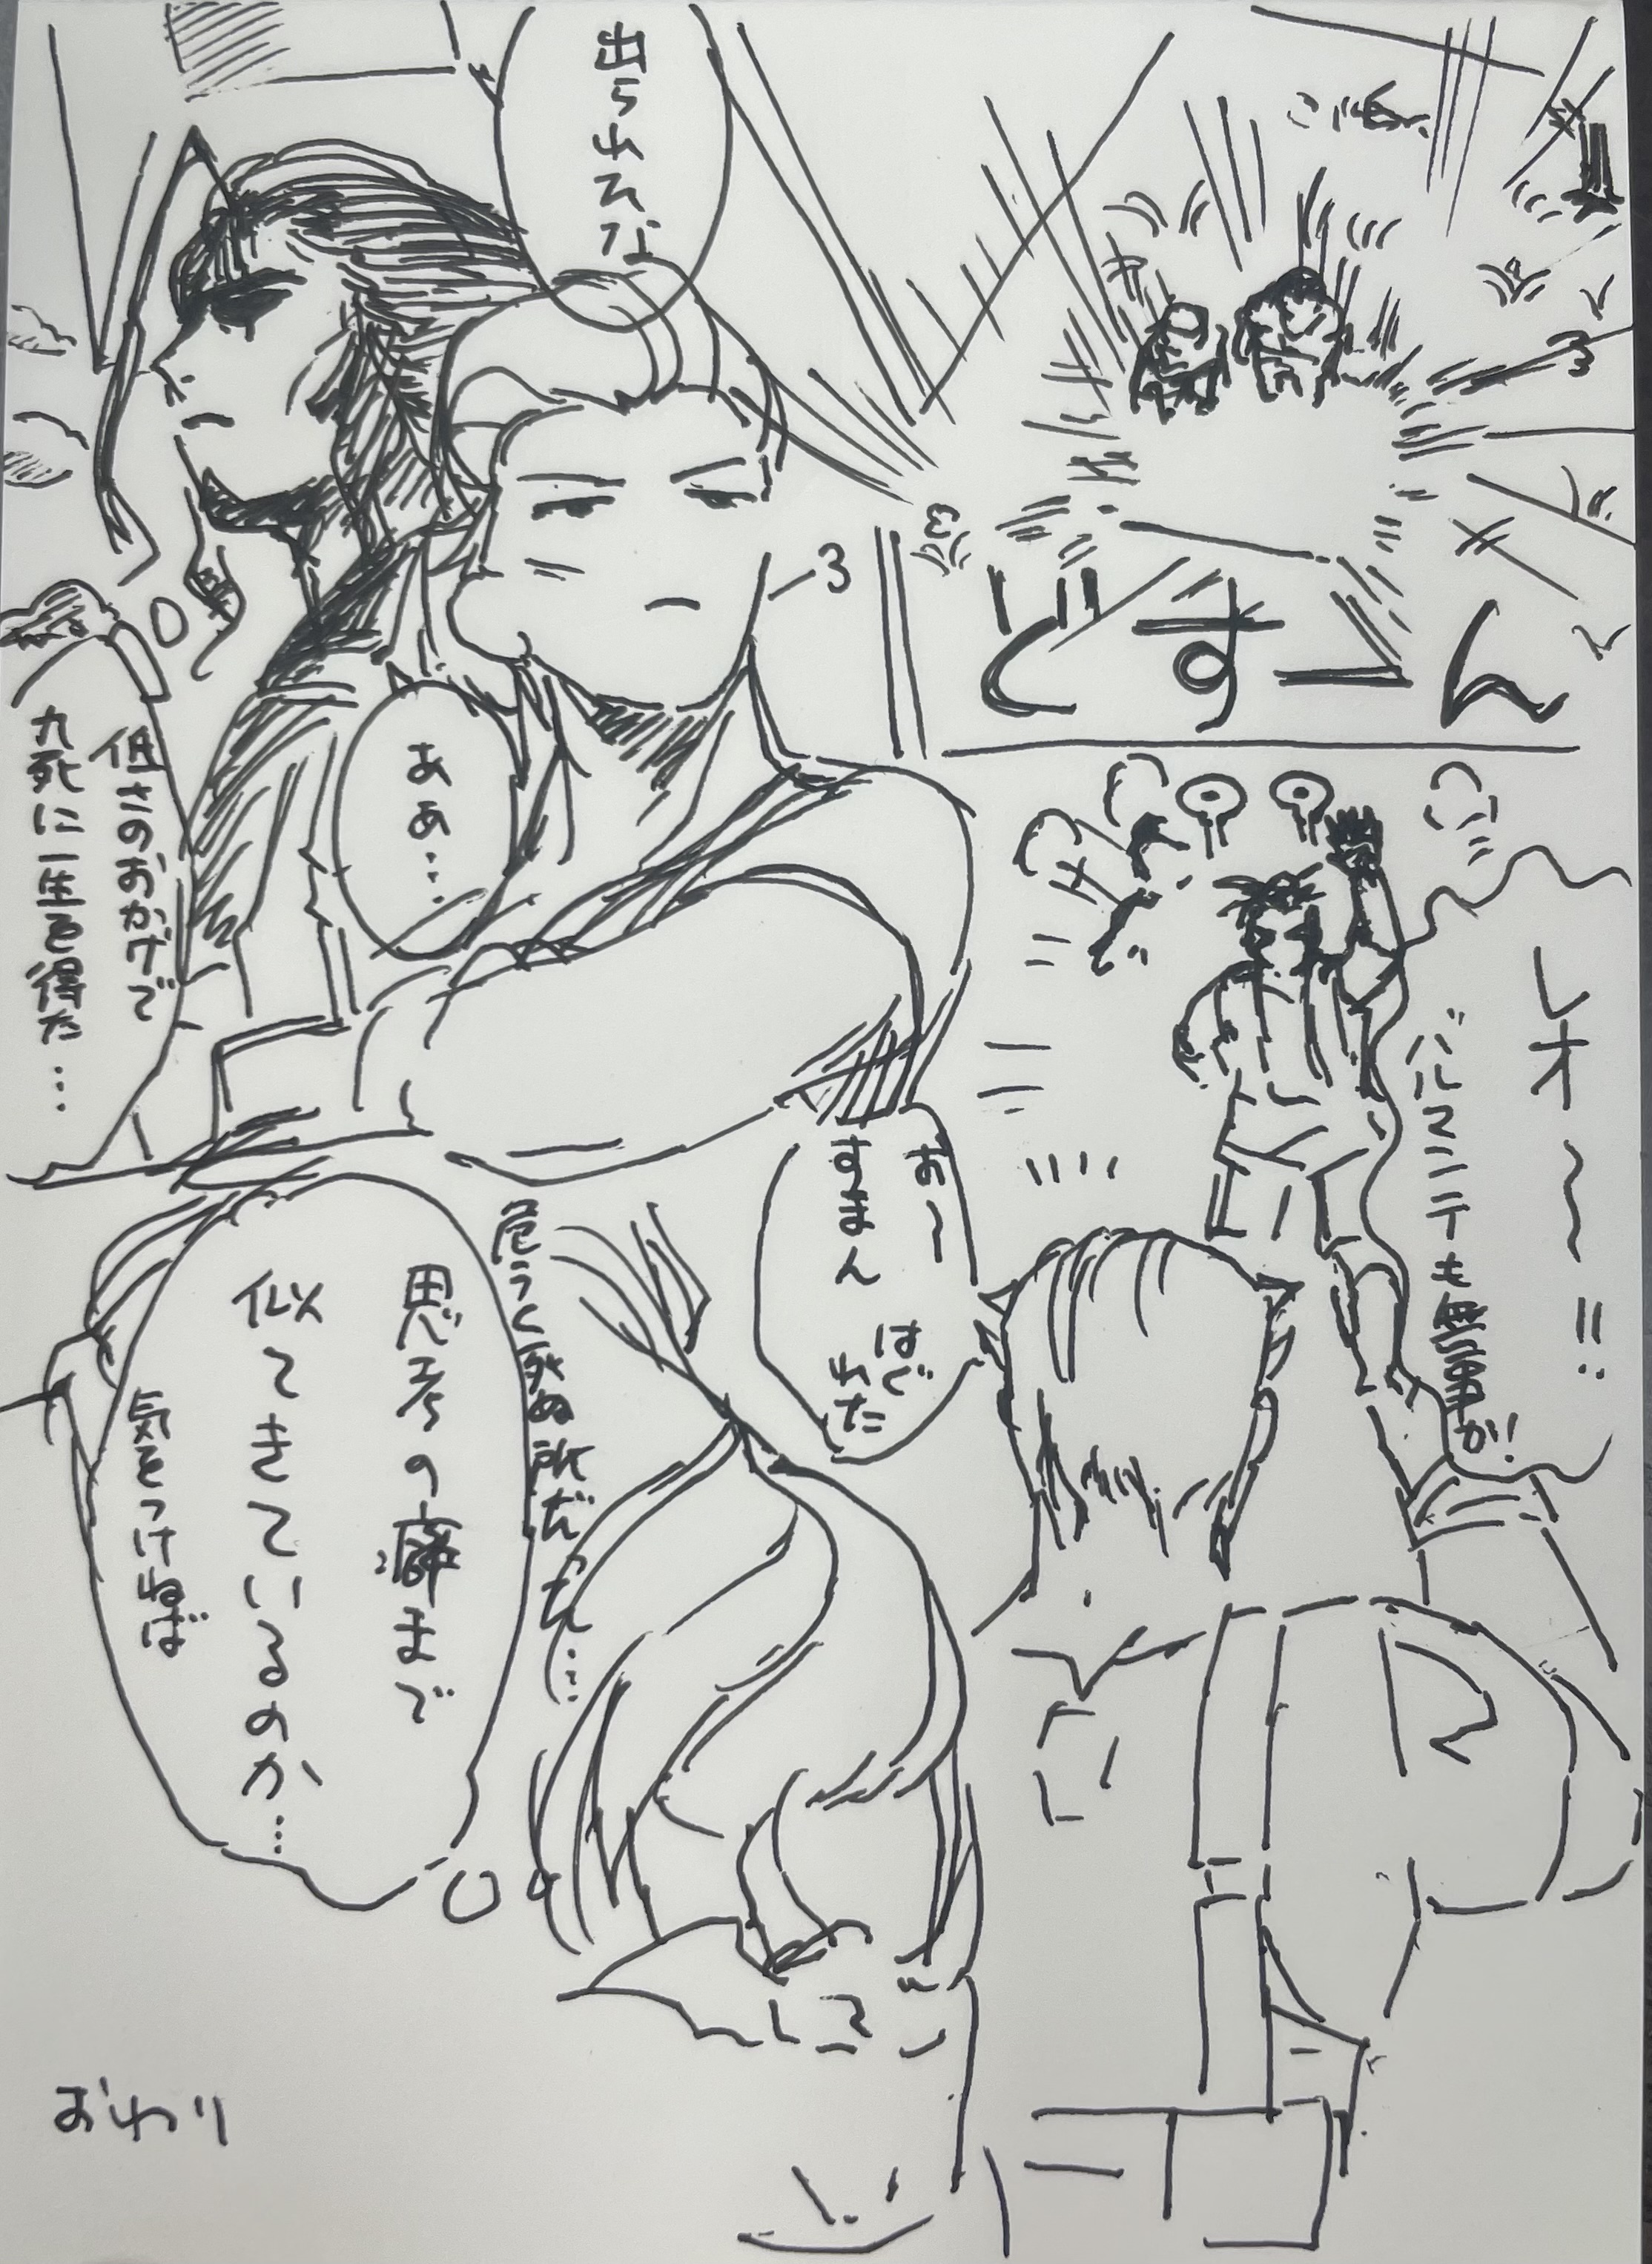 どすーん
出られてな
ああ…
低さのおかげで
九死に一生を得た…
レオ〜!!
パルマニテも無事か!
お〜
すまん
はぐ
れた
危うく死ぬ所だった…
思考の癖まで
似てきているのか…
気をつけねば
おわり